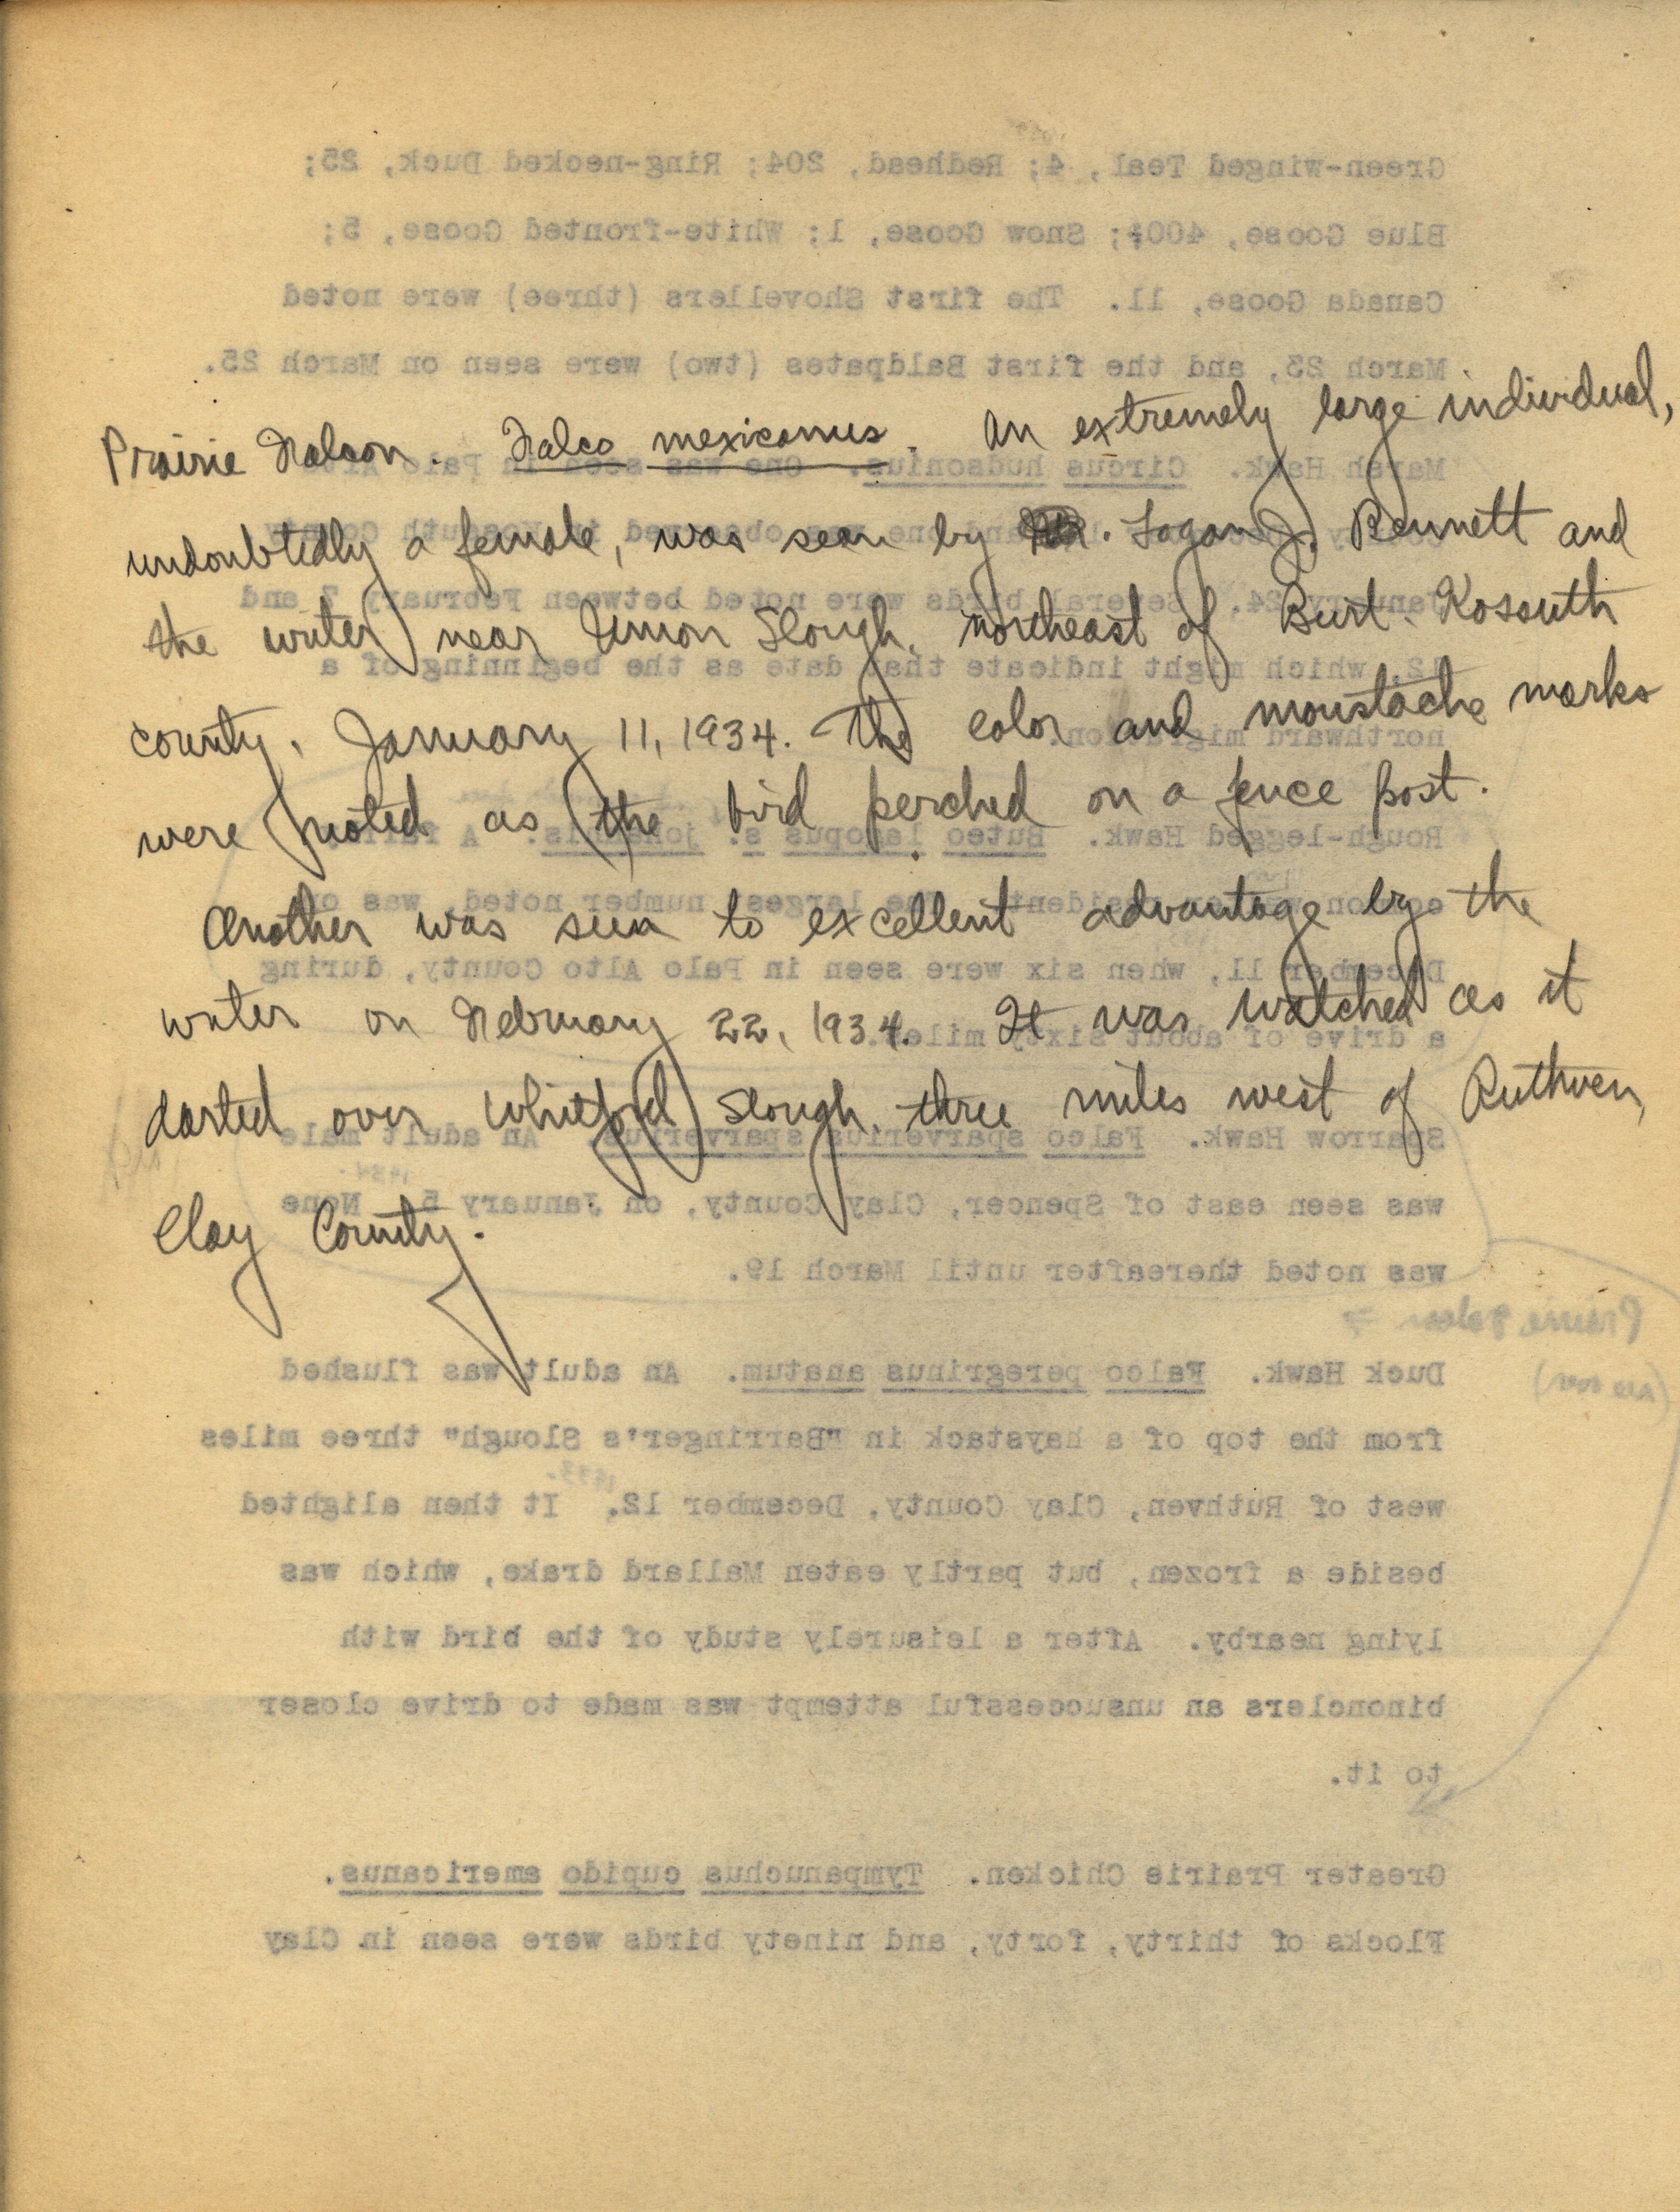 Prairie Falcon. Falco mexicanus. An extremely large individual,
undoubtedly a female, was seen by . Logan J. Bennett and
the writer near Union Slough, northeast of Burt, Kossuth
county, January 11, 1934. The color and moustache marks
were noted as the bird perched on a fence post.
Another was seen to excellent advantage by the
writer on February 22, 1934. It was watched as it
darted over Whitford Slough, three miles west of Ruthven,
Clay County.
Green-winged Teal, 4; Redhead, 204; Ring-necked Duck, 25;
Blue Goose, 400+; Snow Goose, 1; White-fronted Goose, 5;
Canada Goose, 11. The first Shovellers (three) were noted
March 23, and the first Baldpates (two) were seen on March 25.
Marsh Hawk. Circus hudsonius. One was seen in Palo Alto
and one was observed in Kossuth County
January 24. Several birds were noted between February 7 and
12, which might indicate that date as the beginning of a
northward migration.
Rough-legged Hawk. Buteo lagopus s. johannis. A fairly
common winter resident. The largest number noted, was on
December 11, when six were seen in Palo Alto County, during
a drive of about sixty miles.
Sparrow Hawk. Falco sparverius sparverius. An adult male
1934.
was seen east of Spencer, Clay County, on January 5. None
was noted thereafter until March 19.
Prairie Falcon
Duck Hawk. Falco peregrinus anatum. An adult was flushed
from the top of a haystack in "Barringer's Slough" three miles
1933.
west of Ruthven, Clay County, December 12. It then alighted
beside a frozen, but partly eaten Mallard drake, which was
lying nearby. After a leisurely study of the bird with
binonclars an unsuccessful attempt was made to drive closer
to it.
Greater Prairie Chicken. Tympanuchus cupido americanus.
Flocks of thirty, forty, and ninety birds were seen in Clay